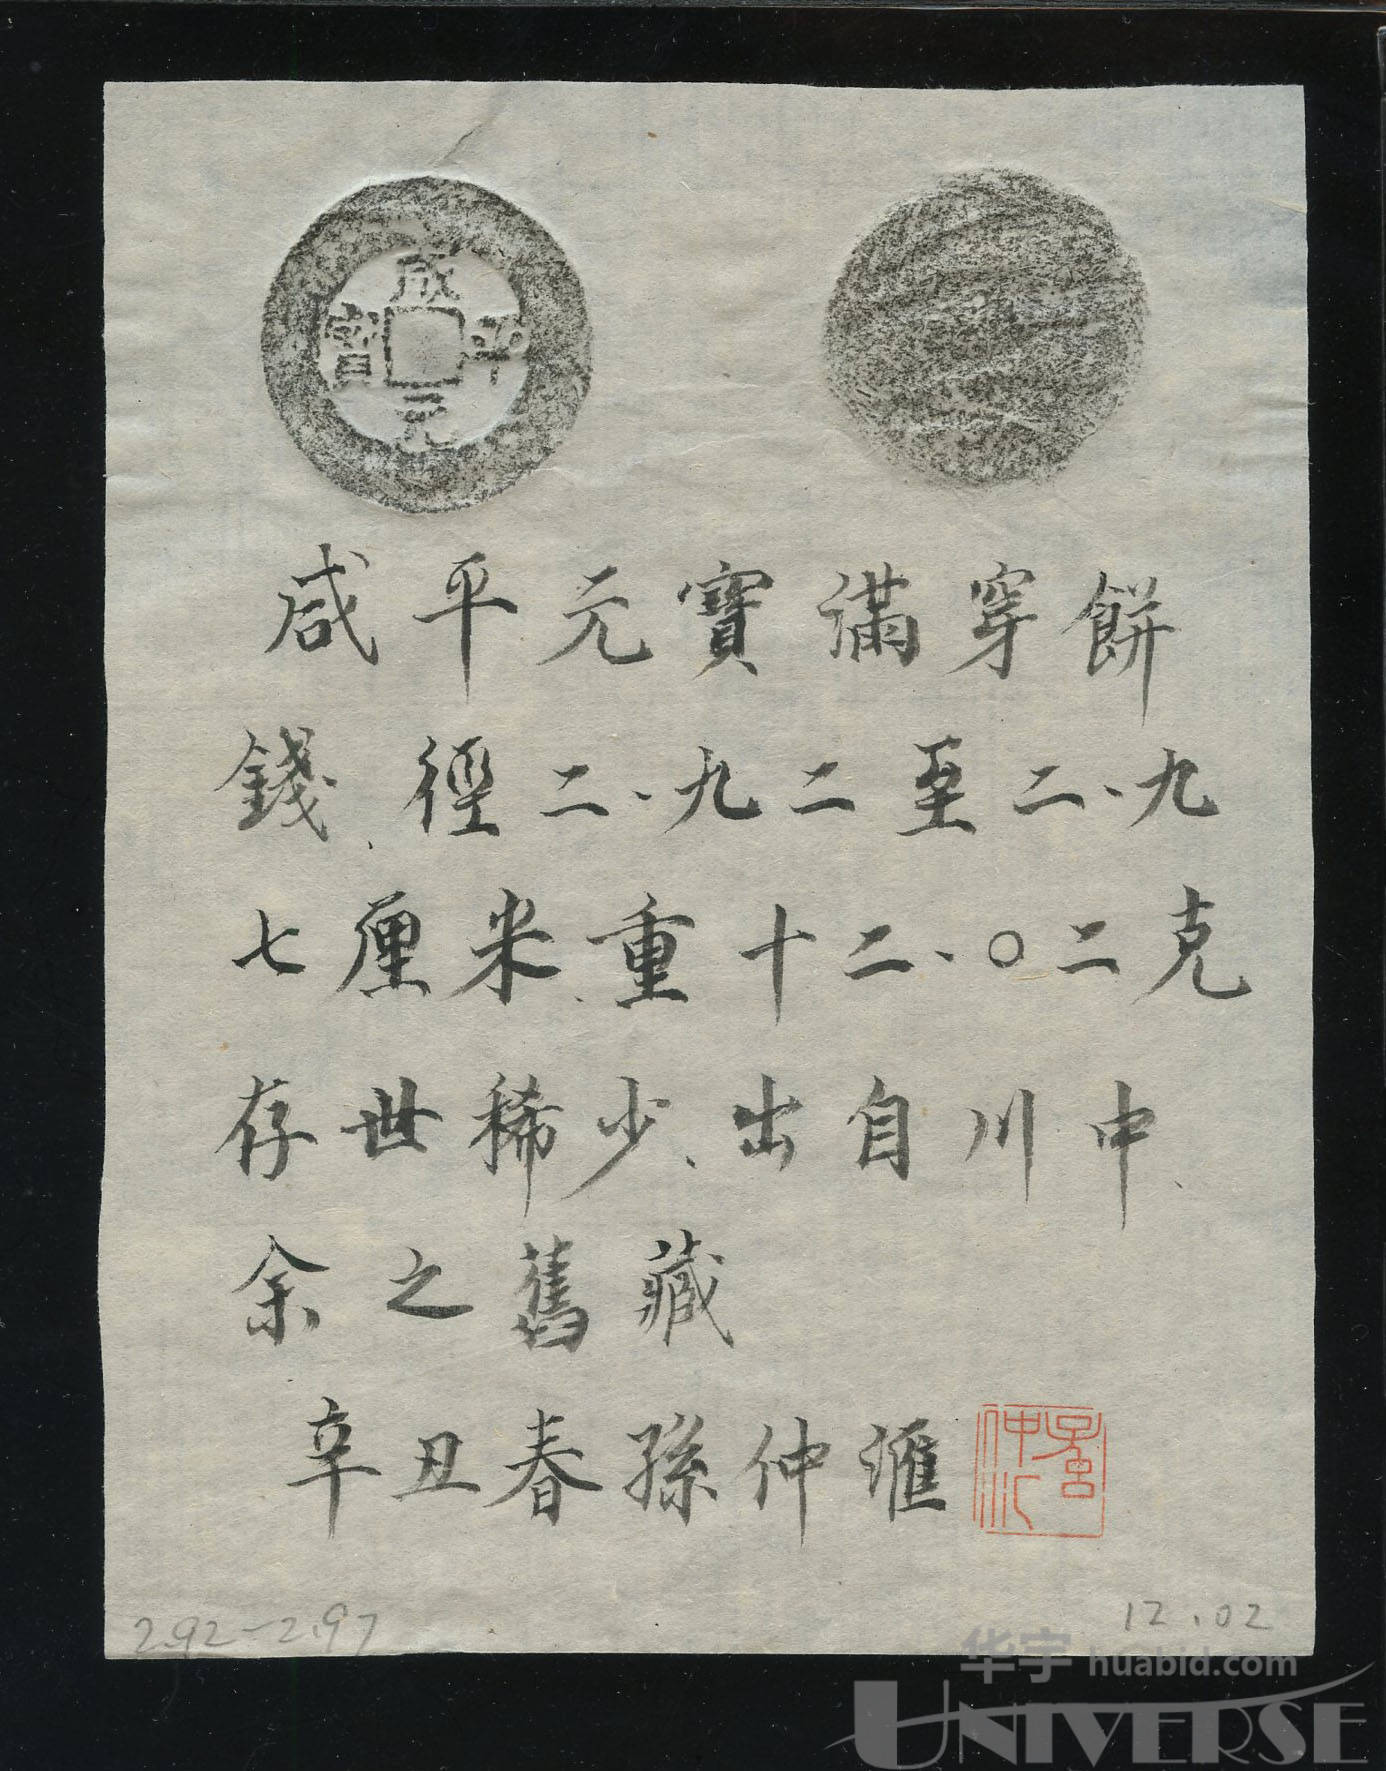 咸平元寶
咸平元寶滿穿餅
錢、徑二、九二至二、九
七厘米、重十二、〇二克
存世稀少、出自川中、
余之舊藏
辛丑春孫仲滙
孫仲汇
2.92-2.97
12.02
华宇 huabid.com
UNIVERSE